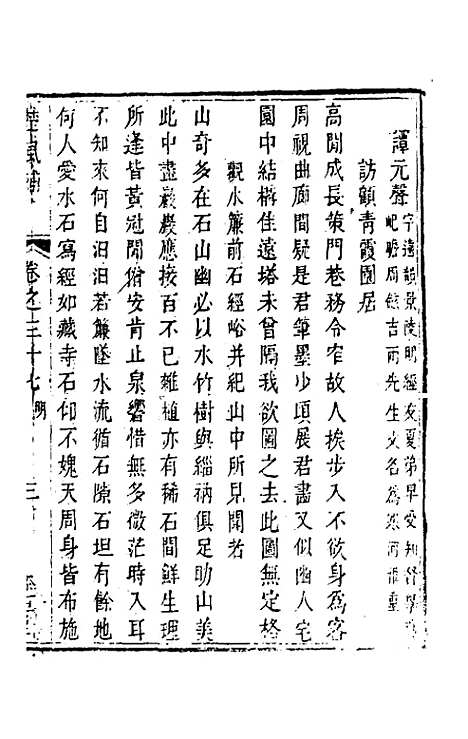 譚元聲
字遠韻景陵明經友夏弟早受知於
訪顧青霞園居
高閒成長策門巷務令窄故人挨步入不欲身爲客
周視曲廊間疑是君筆墨少頃展君畫又似幽人宅
園中結構佳遠塔未曾隔我欲圖之去此圖無定格
觀水簾前石經峪并紀山中所見聞若
山奇多在石山幽必以水竹樹與緇衲俱足助山美
此中盡巖巖應接百不已雜植亦有稀石間鮮生理
所逢皆黃冠閒猶安肯止泉響惜無多微茫時入耳
不知來何自汩汩若簾墜水流循石隙石坦有餘地
何人愛水石寫經如藏寺石仰不媿天周身皆布施
卷之三十七
明
三